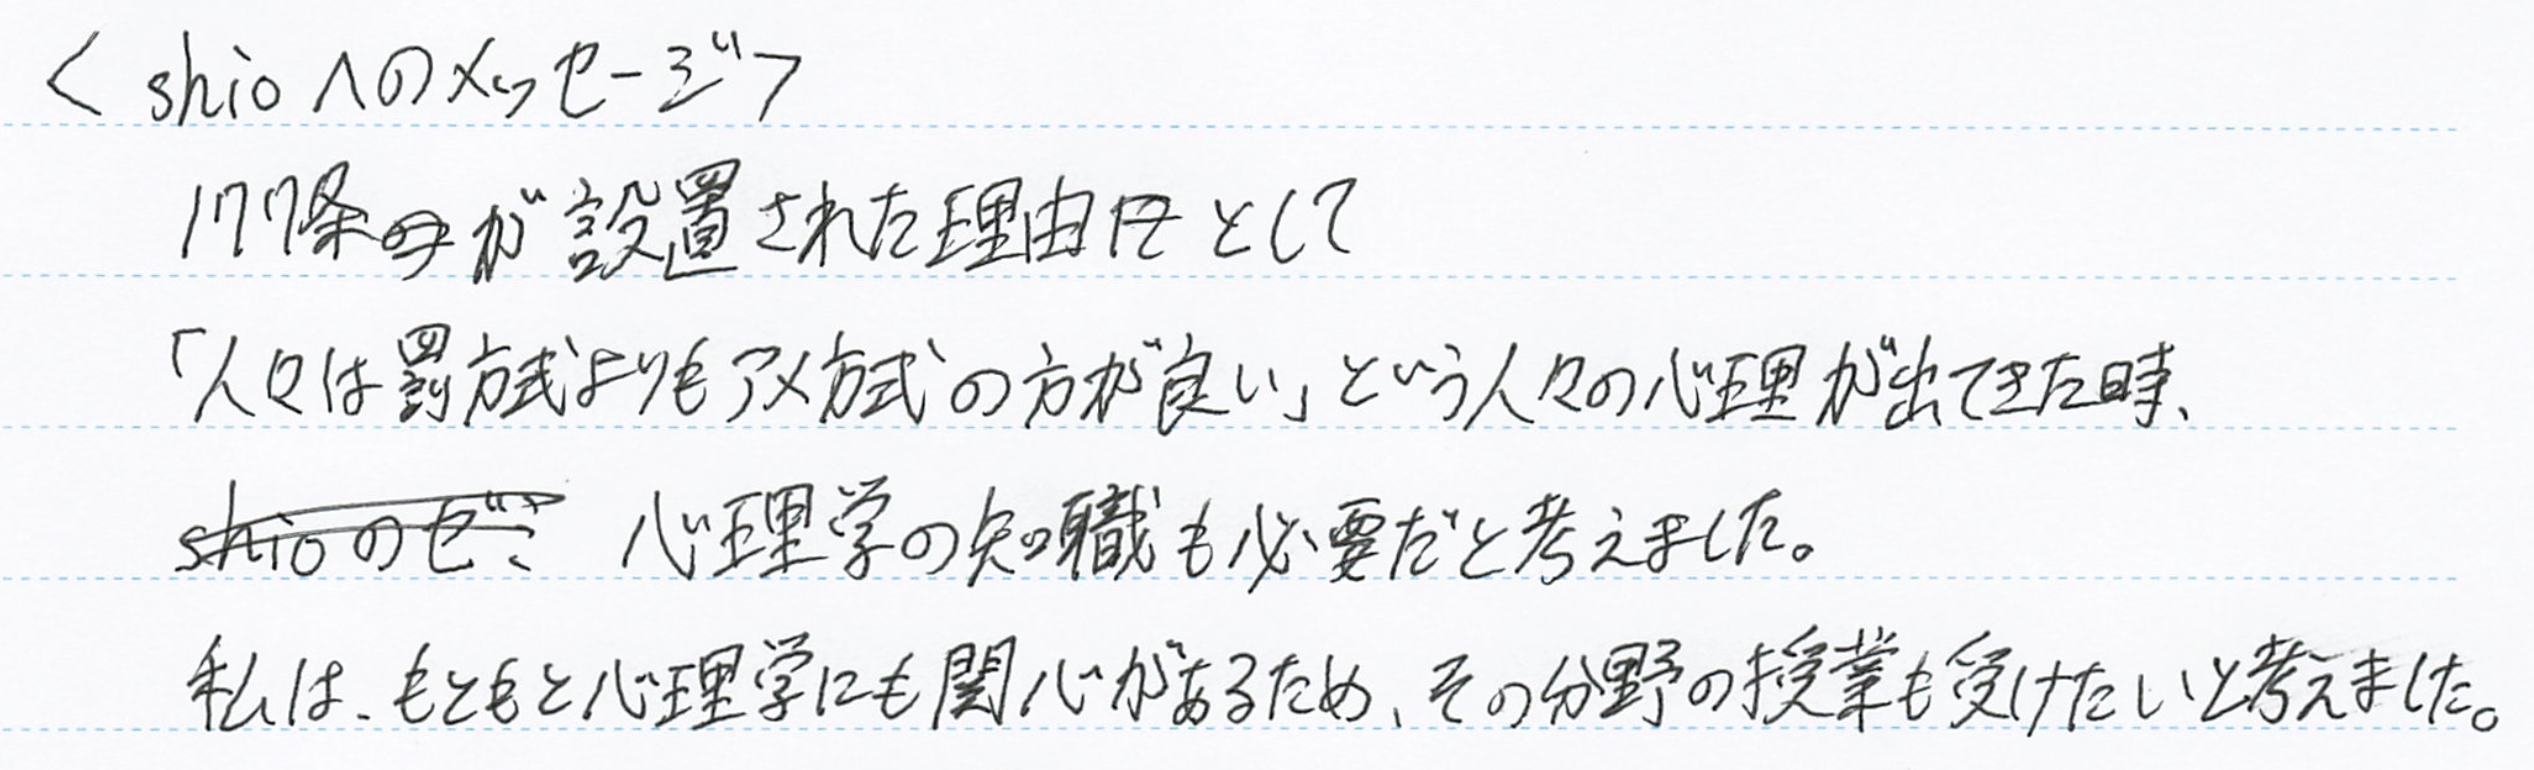 ＜shioへのメッセージ＞
177条が設置された理由として
「人々は罰方式よりもアメ方式の方が良い」という人々の心理が出てきた時、
shioのゼミ 心理学の知職も必要だと考えました。
私は、もともと心理学にも関心があるため、その分野の授業も受けたいと考えました。